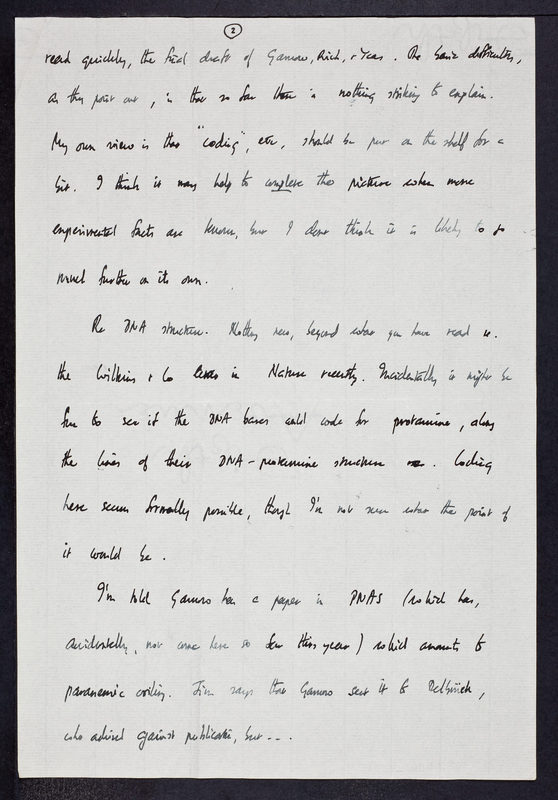 2
read quickly, the final draft of Gamow, Rich, + Ycas. The basic difficulty,
as they point out, is that so far there is nothing striking to explain.
My own view is that "coding", etc, should be put on the shelf for a
bit. I think it may help to complete the picture when more
experimental facts are known, but I dont think it is likely to go
much further on its own.
Re DNA structure. Nothing new, beyond what you have read in
the Wilkins + Co in Nature recently. Incidentally it might be
fun to see if the DNA bases could code for protamine, along
the lines of their DNA-protamine structure. Coding
here seems formally possible, though I'm not sure what the point of
it would be.
I'm told Gamow has a paper in PNAS (which has,
accidentally, not come here so far this year) which amounts to
paranemic coiling. Jim says that Gamow sent it to Delbrück,
who advised against publication, but ---.